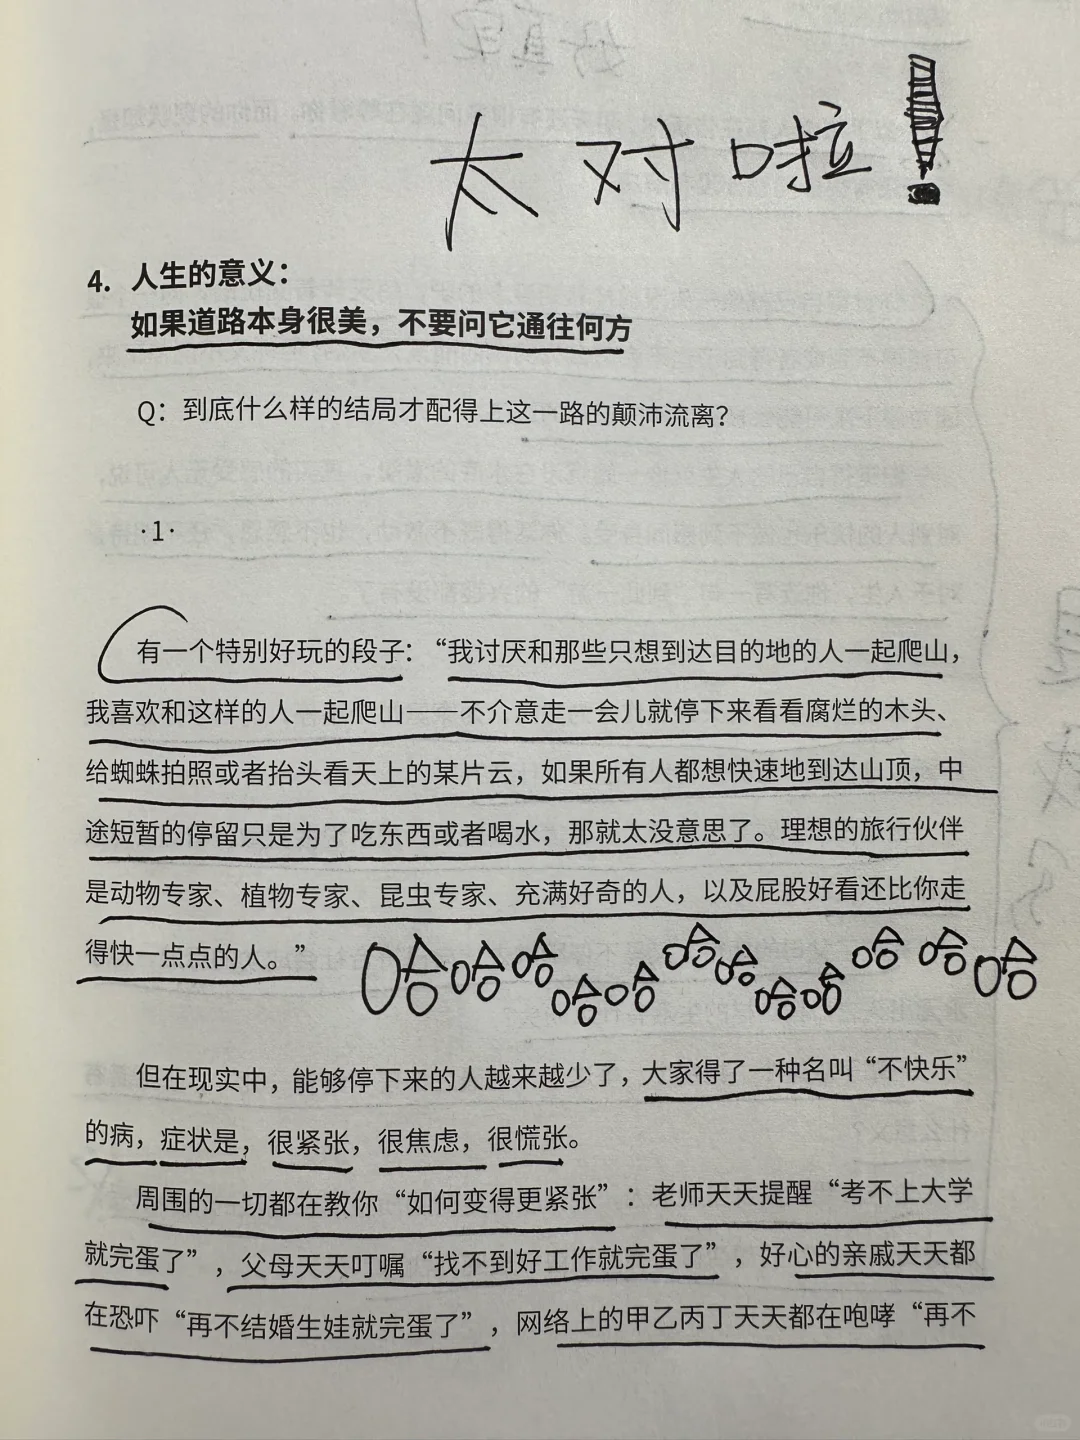 太对啦!
4. 人生的意义：
如果道路本身很美，不要问它通往何方
Q：到底什么样的结局才配得上这一路的颠沛流离？
·1·
有一个特别好玩的段子：“我讨厌和那些只想到达目的地的人一起爬山，
我喜欢和这样的人一起爬山——不介意走一会儿就停下来看看腐烂的木头、
给蜘蛛拍照或者抬头看天上的某片云，如果所有人都想快速地到达山顶，中
途短暂的停留只是为了吃东西或者喝水，那就太没意思了。理想的旅行伙伴
是动物专家、植物专家、昆虫专家、充满好奇的人，以及屁股好看还比你走
得快一点点的人。”
但在现实中，能够停下来的人越来越少了，大家得了一种名叫“不快乐”
的病，症状是，很紧张，很焦虑，很慌张。
周围的一切都在教你“如何变得更紧张”：老师天天提醒“考不上大学
就完蛋了”，父母天天叮嘱“找不到好工作就完蛋了”，好心的亲戚天天都
在恐吓“再不结婚生娃就完蛋了”，网络上的甲乙丙丁天天都在咆哮“再不